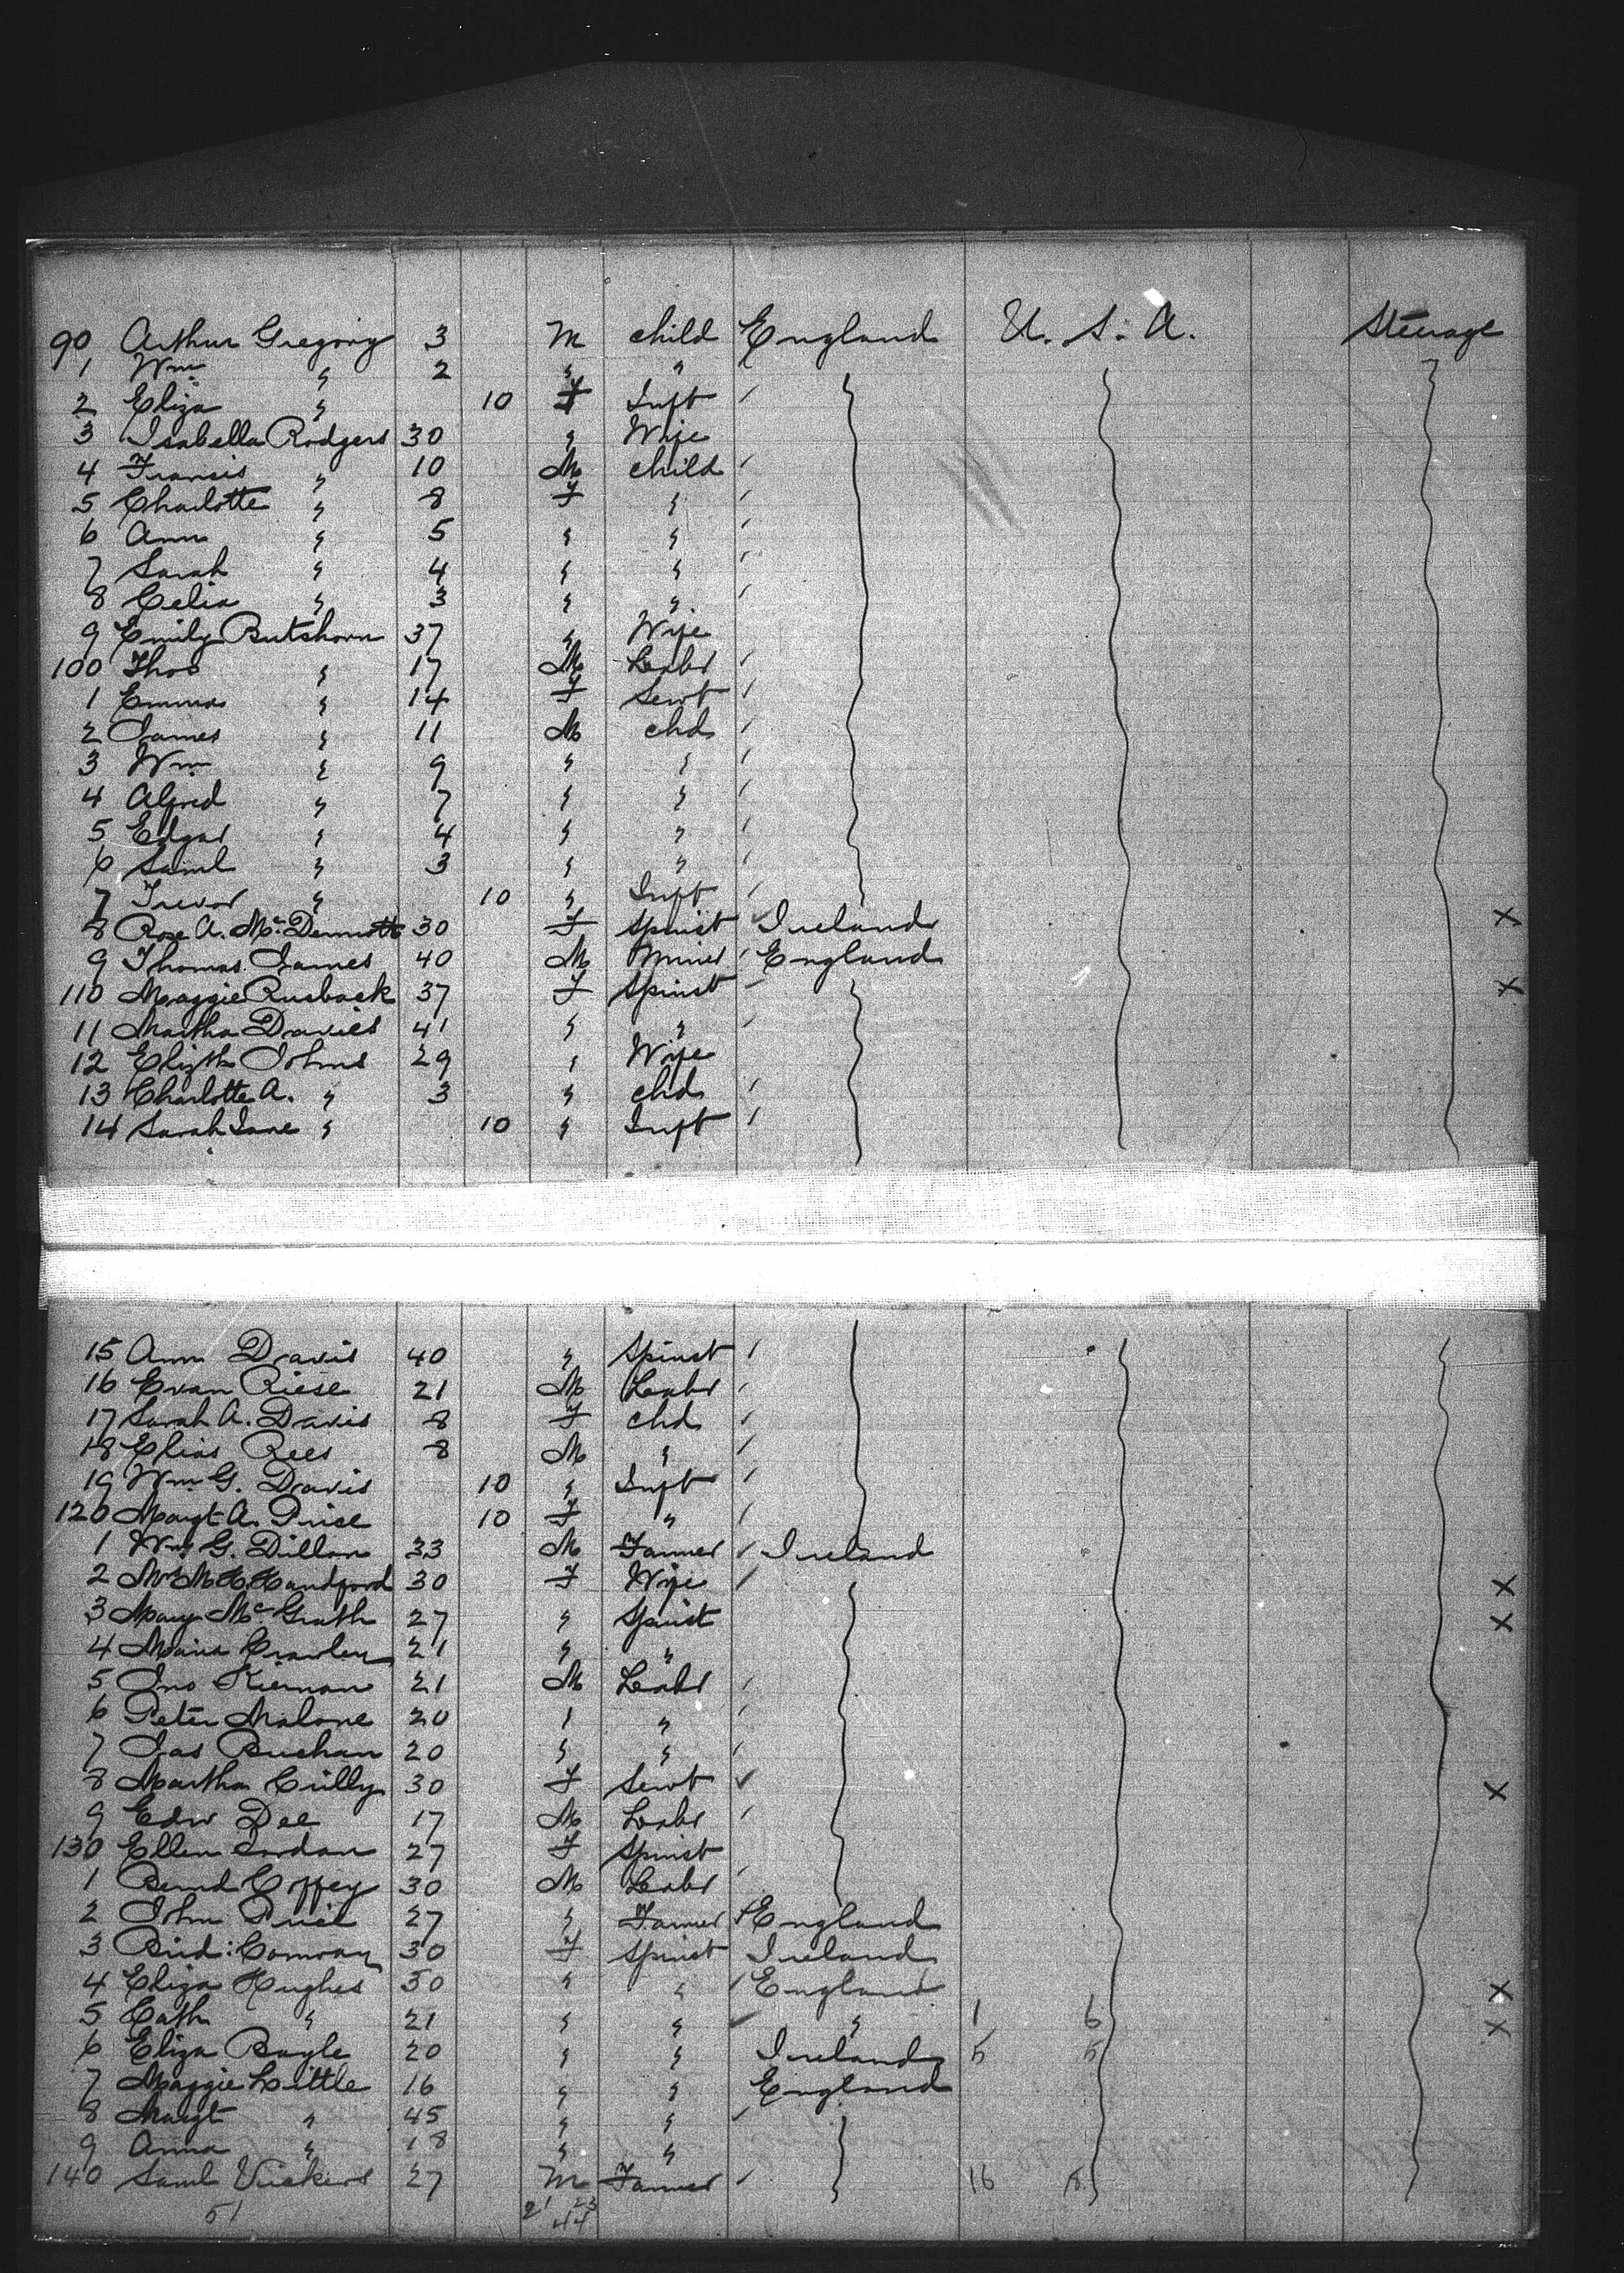 90 Arthur Gregory 3 M child England U. S. A. Steerage
1 Wm " 2 " "
2 Eliza " 10 F Inft
3 Isabella Rodgers 30 " Wife
4 Francis " 10 M child
5 Charlotte " 8 F "
6 Ann " 5 " "
7 Sarah " 4 " "
8 Celia " 3 " "
9 Emily Butshorn 37 " Wife
100 Thos " 17 M Labr
1 Emma " 14 F Servt
2 James " 11 M chd
3 Wm " 9 " "
4 Alfred " 7 " "
5 Edgar " 4 " "
6 Saml " 3 " "
7 Trevor " 10 " Inft
8 Rose A. McDermott 30 F Spinst Ireland X
9 Thomas James 40 M Miner England
110 Maggie Rusback 37 F Spinst X
11 Martha Davies 41 " "
12 Elizth Johns 29 " Wife
13 Charlotte A. " 3 " chd
14 Sarah Jane " 10 " Inft
15 Ann Davis 40 " Spinst
16 Evan Riese 21 M Labr
17 Sarah A. Davis 8 F chd
18 Elias Rees 8 M "
19 Wm G. Davis 10 " Inft
120 Margt A. Price 10 F "
1 Wm G. Dillon 33 M Farmer Ireland
2 Mrs M. H. Handford 30 F Wife X
3 Mary McGrath 27 " Spinst X
4 Maria Crawley 21 " "
5 Jno Kiernan 21 M Labr
6 Peter Malone 20 " "
7 Jas Buchan 20 " "
8 Martha Crilly 30 F Servt X
9 Edw Dee 17 M Labr
130 Ellen Jordan 27 F Spinst
1 Bernd Coffey 30 M Labr
2 John Price 27 " Farmer England
3 Brid: Conway 30 F Spinst Ireland
4 Eliza Hughes 50 " " England X
5 Cath " 21 " " " 1 6 X
6 Eliza Boyle 20 " " Ireland 5 5
7 Maggie Little 16 " " England
8 Margt " 45 " "
9 Anna " 18 " "
140 Saml Vickers 27 M Farmer 16 5
51 21 23
44